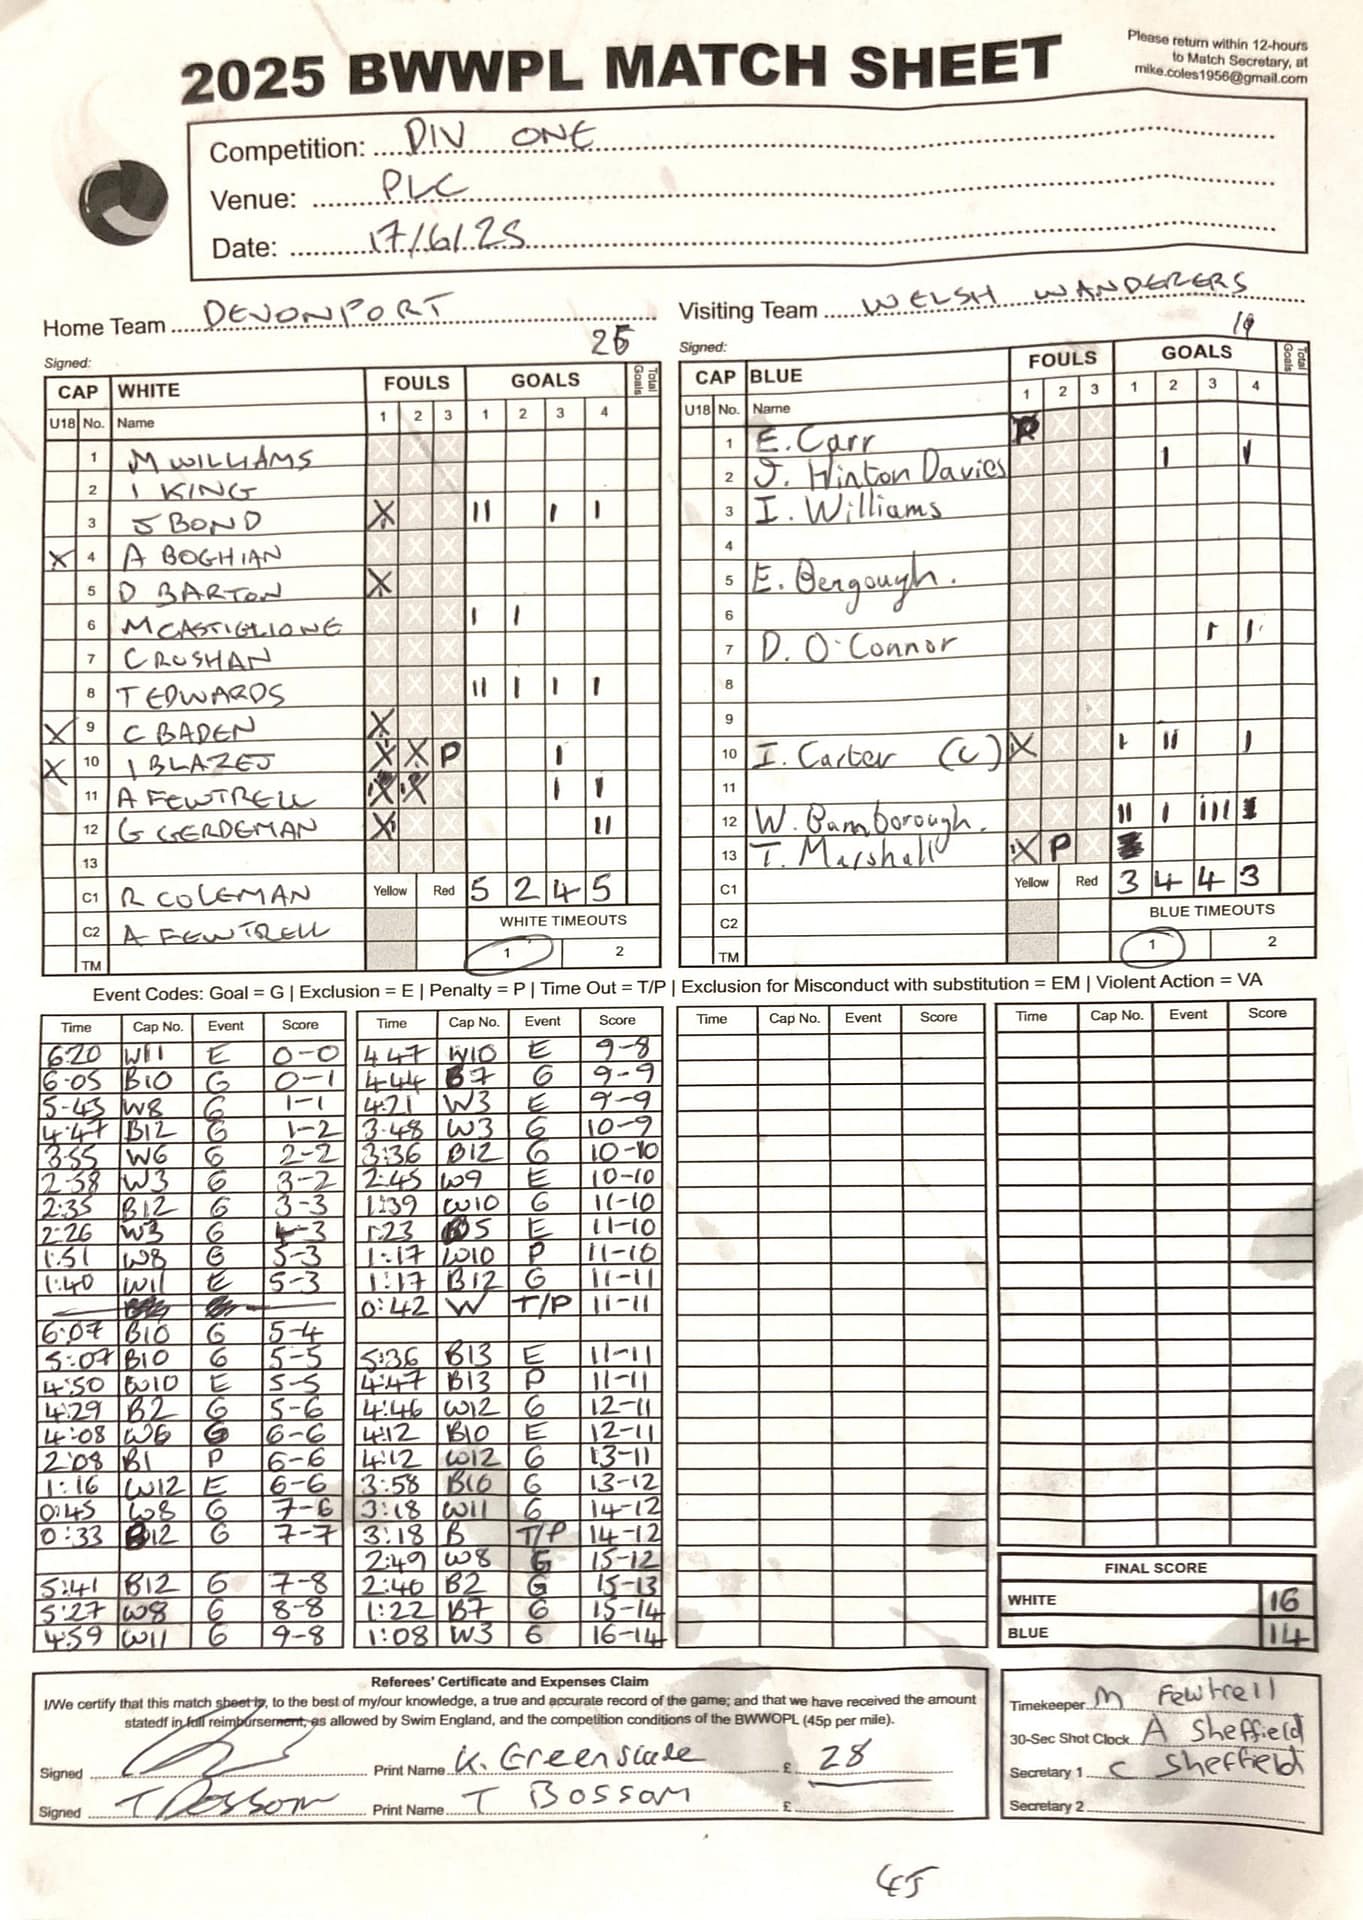 Please return within 12-hours
to Match Secretary, at
mike.coles1956@gmail.com
2025 BWWPL MATCH SHEET
Competition: DIV ONE
Venue: PLC
Date: 17/6/25
Home Team DEVONPORT
Visiting Team WELSH WANDERERS
Signed:
CAP WHITE FOULS GOALS Total Goals
U18 No. Name 1 2 3 1 2 3 4
1 M WILLIAMS
2 I KING
3 J BOND X II I I
X 4 A BOGHIAN
5 D BARTON X
6 M CASTIGLIONE I I
7 C RUSHAN
8 T EDWARDS II I I I
X 9 C BADEN X
X 10 I BLAZEJ X X P I
11 A FEWTRELL X X I I
12 G GERDEMAN X II
13
C1 R COLEMAN Yellow Red 5 2 4 5
C2 A FEWTRELL WHITE TIMEOUTS
TM 1 2
Signed:
CAP BLUE FOULS GOALS Total Goals
U18 No. Name 1 2 3 1 2 3 4
1 E. Carr P
2 J. Hinton Davies I I
3 I. Williams
4
5 E. Bergough.
6
7 D. O'Connor I I
8
9
10 I. Carter (C) X I II I
11
12 W. Bamborough. II I III
13 T. Marshall X P
C1 Yellow Red 3 4 4 3
C2 BLUE TIMEOUTS
TM 1 2
Event Codes: Goal = G | Exclusion = E | Penalty = P | Time Out = T/P | Exclusion for Misconduct with substitution = EM | Violent Action = VA
Time Cap No. Event Score
6:20 W11 E 0-0
6-05 B10 G 0-1
5-43 W8 G 1-1
4:47 B12 G 1-2
3:55 W6 G 2-2
2:38 W3 G 3-2
2:35 B12 G 3-3
2:26 W3 G 4-3
1:51 W8 G 5-3
1:40 W11 E 5-3
6:07 B10 G 5-4
5:07 B10 G 5-5
4:50 W10 E 5-5
4:29 B2 G 5-6
4:08 W6 G 6-6
2:08 B1 P 6-6
1:16 W12 E 6-6
0:45 W8 G 7-6
0:33 B12 G 7-7
5:41 B12 G 7-8
5:27 W8 G 8-8
4:59 W11 G 9-8
Time Cap No. Event Score
4 47 W10 E 9-8
4:44 B7 G 9-9
4:21 W3 E 9-9
3:48 W3 G 10-9
3:36 B12 G 10-10
2:45 W9 E 10-10
1:39 W10 G 11-10
1:23 W5 E 11-10
1:17 W10 P 11-10
1:17 B12 G 11-11
0:42 W T/P 11-11
5:36 B13 E 11-11
4:47 B13 P 11-11
4:46 W12 G 12-11
4:12 B10 E 12-11
4:12 W12 G 13-11
3:58 B10 G 13-12
3:18 W11 G 14-12
3:18 B T/P 14-12
2:49 W8 G 15-12
2:40 B2 G 15-13
1:22 B7 G 15-14
1:08 W3 G 16-14
Time Cap No. Event Score
Time Cap No. Event Score
FINAL SCORE
WHITE 16
BLUE 14
Referees' Certificate and Expenses Claim
I/We certify that this match sheet is, to the best of my/our knowledge, a true and accurate record of the game; and that we have received the amount
statedf in full reimbursement, as allowed by Swim England, and the competition conditions of the BWWOPL (45p per mile).
Signed Print Name K. Greenslade £ 28
Signed T Bossom Print Name T Bossom £
Timekeeper M Fewtrell
30-Sec Shot Clock A Sheffield
Secretary 1 C Sheffield
Secretary 2
45